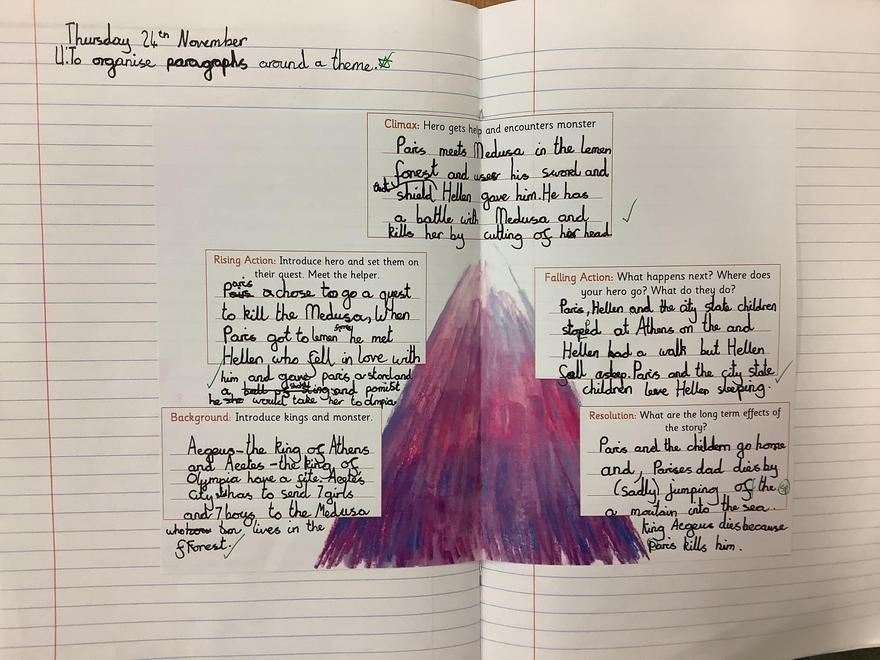 Thursday 24th November
LI: To organise paragraphs around a theme.
Climax: Hero gets help and encounters monster
Paris meets Medusa in the lemen
forest and uses his sword and
shield Hellen gave him. He has
a battle with Medusa and
kills her by cutting of her head
Rising Action: Introduce hero and set them on
their quest. Meet the helper.
Paris a chose to go a quest
to kill the Medusa, When
Paris got to lemen he met
Hellen who fell in love with
him and gave paris a and
a string and pomist
he would take her to olmpia
Background: Introduce kings and monster.
Aegeus - the king of Athens
and Aeetes - the king of
Olympia have a fite. Aeetes
City has to send 7 girls
and 7 boys to the Medusa
who lives in the
fForest.
Falling Action: What happens next? Where does
your hero go? What do they do?
Paris, Hellen and the city state children
stoped at Athens on the and
Hellen had a walk but Hellen
fell asleep. Paris and the city state
children leve Hellen sleeping.
Resolution: What are the long term effects of
the story?
Paris and the childern go home
and, Parises dad dies by
(sadly) jumping of the
a moutain into the sea.
King Aegeus dies because
Paris kills him.